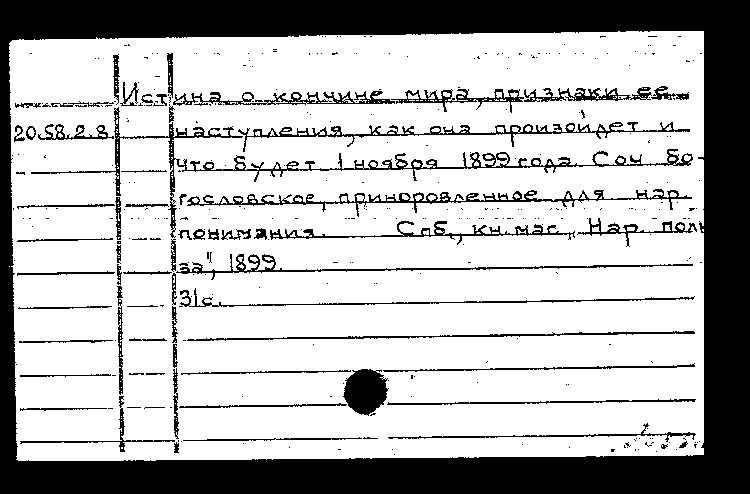 Истина о кончине мира, признаки ее
20.58.2.8. наступления, как она произойдет и
что будет 1 ноября 1899 года. Соч бо-
гословское, приноровленное для нар.
понимания. Спб., кн. маг. „Нар. поль
за", 1899.
31с.